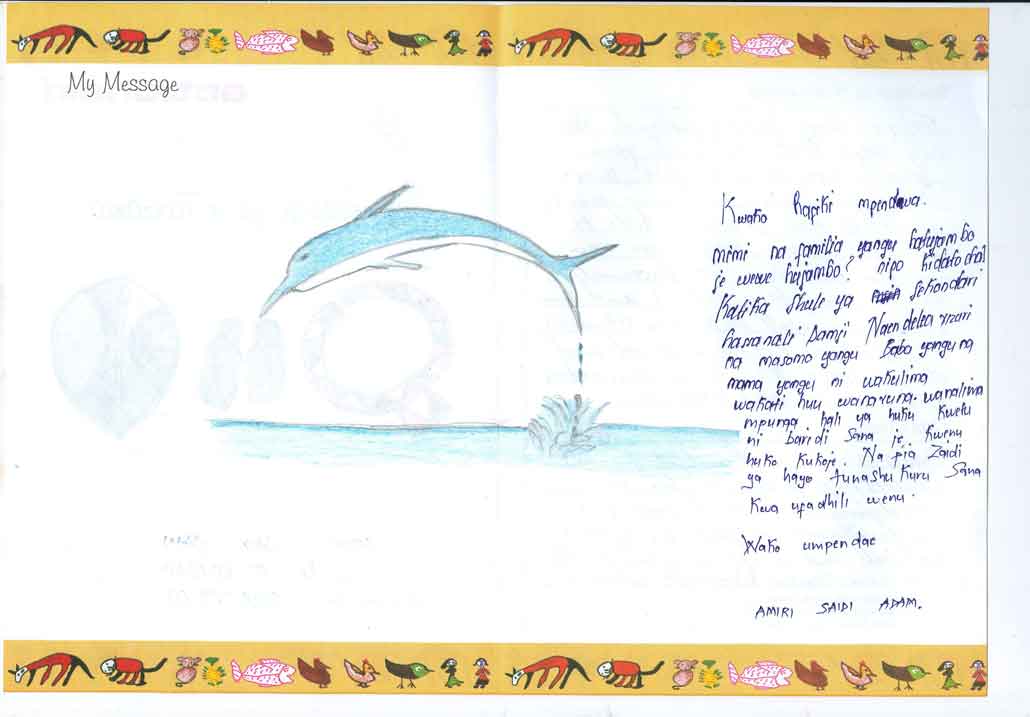 My Message
Kwako Rafiki mpendwa.
mimi na familia yangu hatujambo
je wewe hujambo? nipo kidato cha 1
Katika shule ya sekondari
hassanali Damji Naendelea vizuri
na masomo yangu Baba yangu na
mama yangu ni wakulima
wakati huu wanavuna. wanalima
mpunga hali ya huku kwetu
ni baridi sana je kwenu
huko kukoje. Na pia zaidi
ya hayo tunashukuru sana
kwa ufadhili wenu.
Wako umpendae
AMIRI SAIDI ADAM.